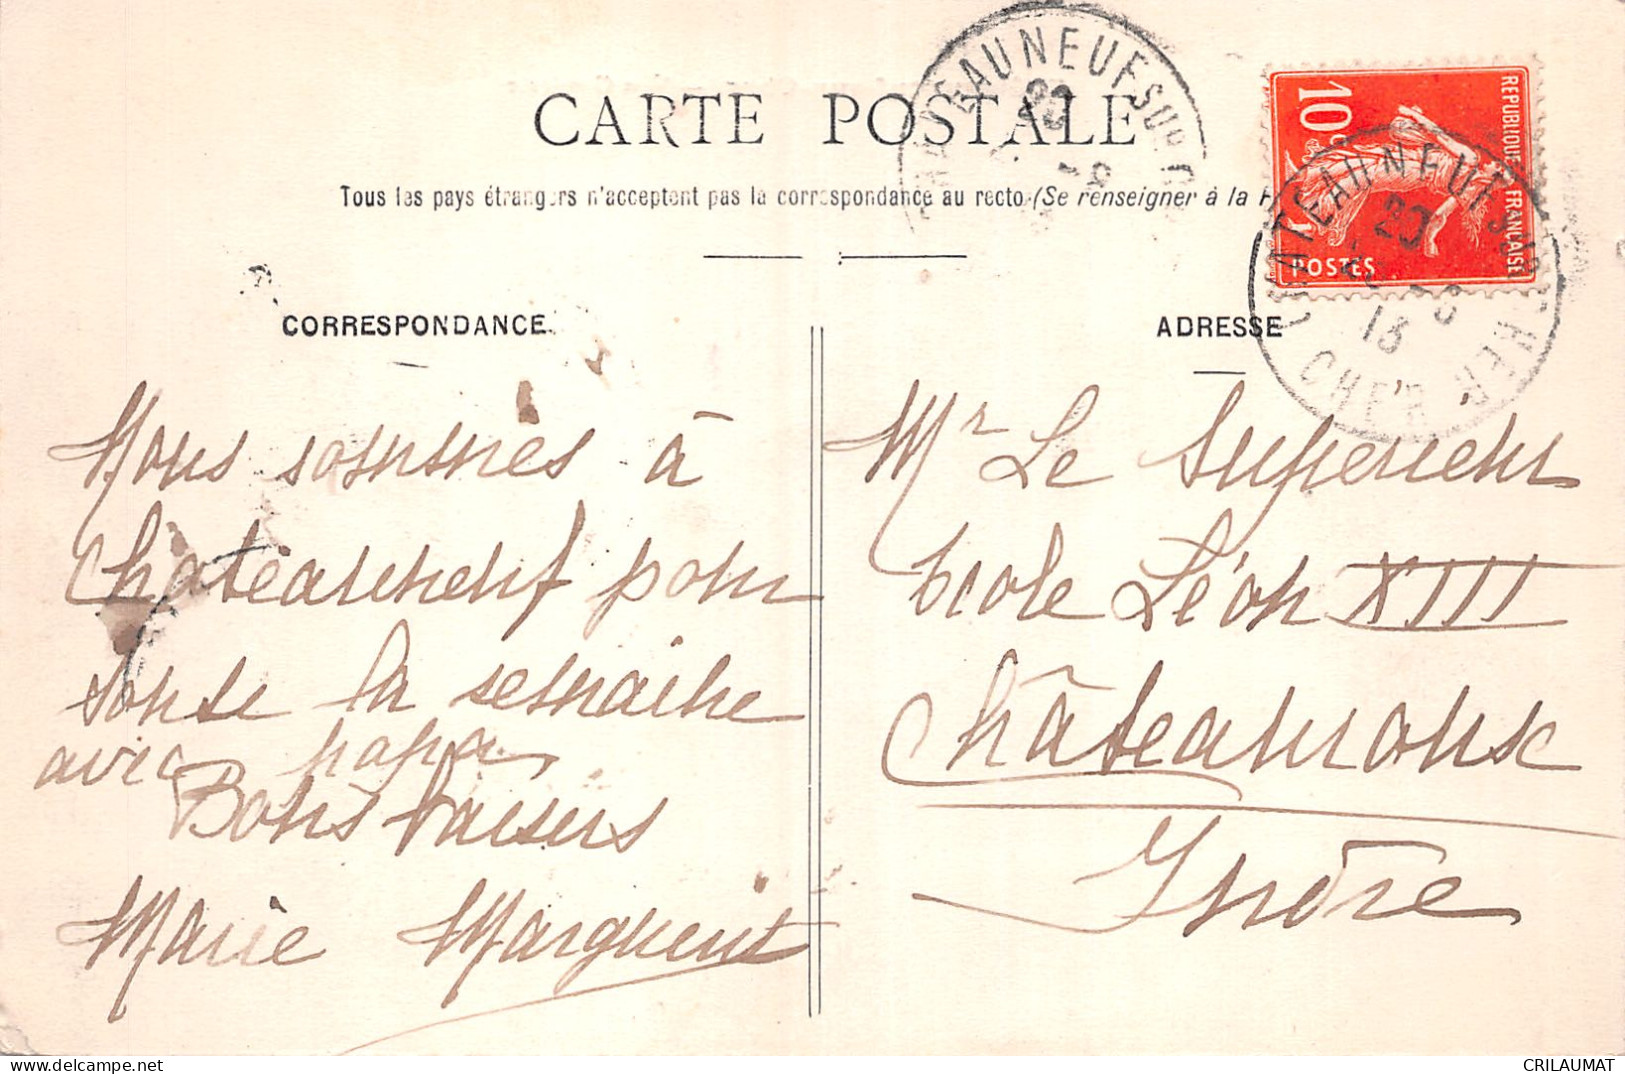 CARTE POSTALE
Tous les pays étrangers n'acceptent pas la correspondance au recto (Se renseigner à la
CORRESPONDANCE
ADRESSE
REPUBLIQUE FRANÇAISE
10c
POSTES
CHATEAUNEUF SUR CHER
20
13
CHER
EAUNEUF SUR C
20
Nous sommes à
Chateauneuf pour
toute la semaine
avec papa
Bons baisers
Marie Marguerit
Mr Le Superieur
Ecole Léon XIII
Châteauroux
Indre
CRILAUMAT